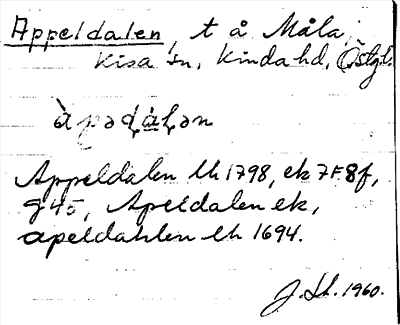 Appeldalen, t å Måla,
Kisa sn, Kinda hd, Östgl.
àpədàlən
Appeldalen lh 1798, ek 7F8f,
g45, Apeldalen ek,
apeldahlen lh 1694.
1960.